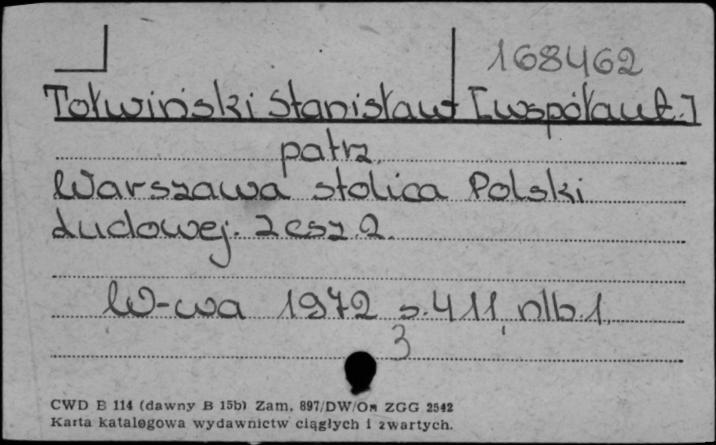 168462
Tołwiński Stanisław [współaut.]
patrz
Warszawa stolica Polski
Ludowej. Zesz. 2.
W-wa 1972 s. 411, nlb. 1.
3
CWD B 114 (dawny B 15b) Zam. 897/DW/Om ZGG 2542
Karta katalogowa wydawnictw ciągłych i zwartych.